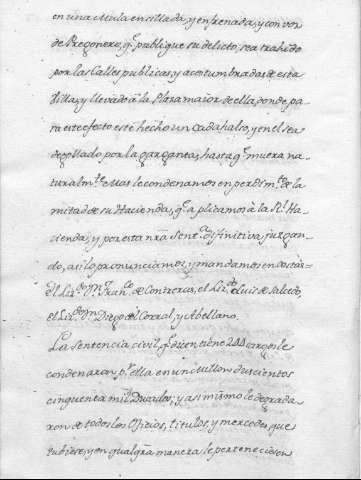 en una mula ensillada, y enfrenada, y con voz
de Pregonero, q.e publique su delicto; sea trahido
por las Calles publicas, y acostumbradas de esta
Villa, y llevado â la Plaza maior de ella, donde pa-
ra este efecto esté hecho un cadahalso, y en el sea
degollado por la garganta, hasta q.e muera na-
turalm.te Mas le condenamos en perdim.to de la
mitad de su Hacienda, q.e aplicamos â la R.l Ha-
cienda; y por esta nrâ sent.a difinitiva, juzgan-
do, asi lo pronunciamos, y mandamos en costas=
el Liz.do D.n Fran.co de Contreras, el Liz.do Luis de Salcedo,
el Liz.do D.n Diego del Corral, y Arellano.
La sentencia civil, q.e contiene 244 cargos le
condenaron p.r ella en un cullon ducientos
cinquenta mil Ducados, y asi mismo le degrada-
ron de todos los Oficios, titulos, y mercedes que
tubiese, y en qualq.ra manera le pertenecieson